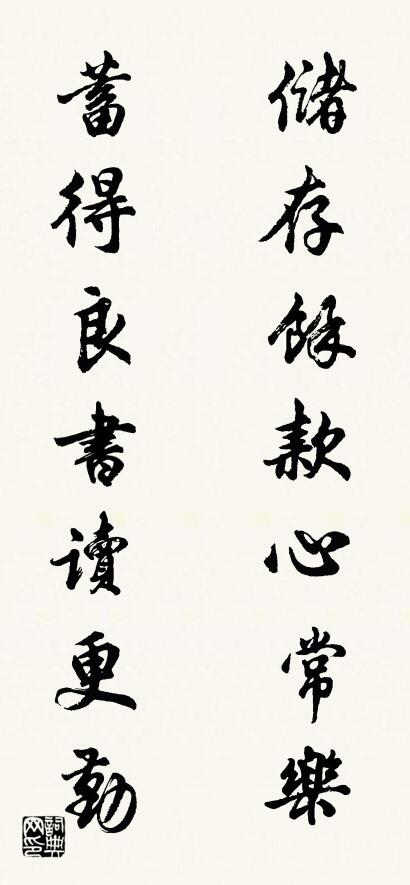 儲存餘款心常樂
蓄得良書讀更勤
詞典网印